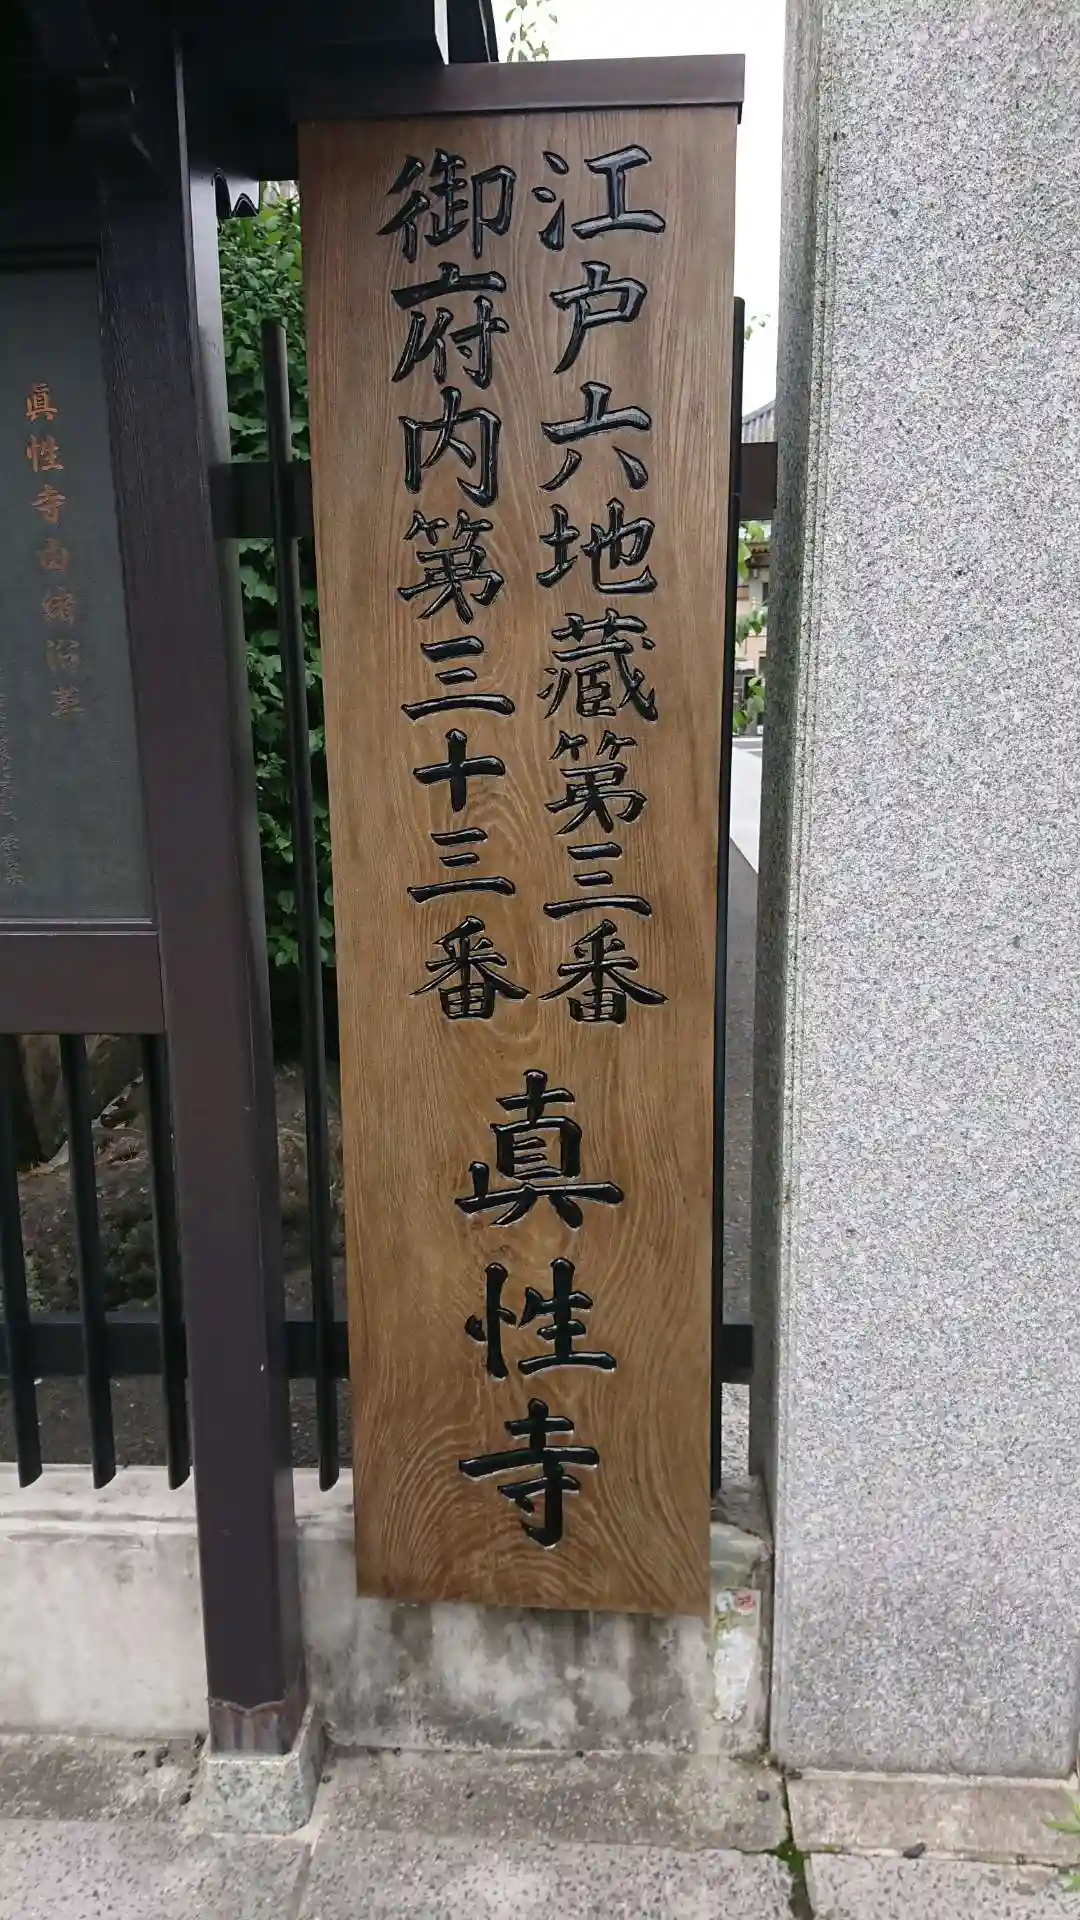 江戸六地蔵第三番
御府内第三十三番
眞性寺
眞性寺由緒沿革